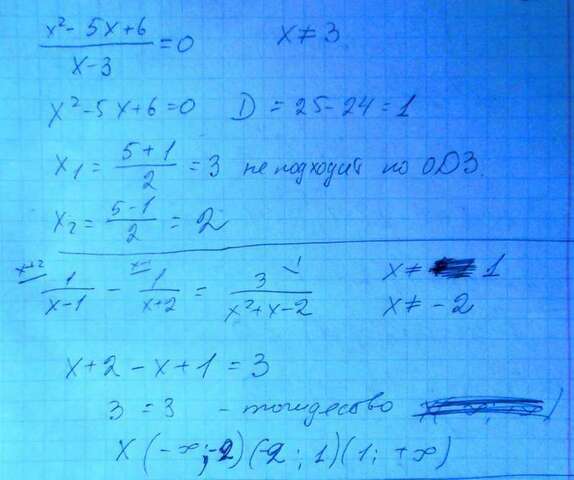 x² - 5x + 6 / x - 3 = 0    x ≠ 3
x² - 5x + 6 = 0    D = 25 - 24 = 1
x₁ = 5 + 1 / 2 = 3 не подходит по ОДЗ.
x₂ = 5 - 1 / 2 = 2
x+2   x-1   1
1 / x - 1 - 1 / x + 2 = 3 / x² + x - 2    x ≠ 1
x ≠ -2
x + 2 - x + 1 = 3
3 = 3 - тождество
x (-∞; -2) (-2; 1) (1; +∞)